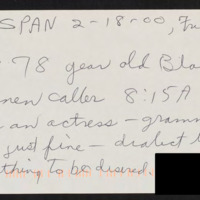 SPAN 2-18-00, Fu
78 year old Bla
men caller 8:15A
an actress - gramm
just fine - dialect l
thing to be desired.